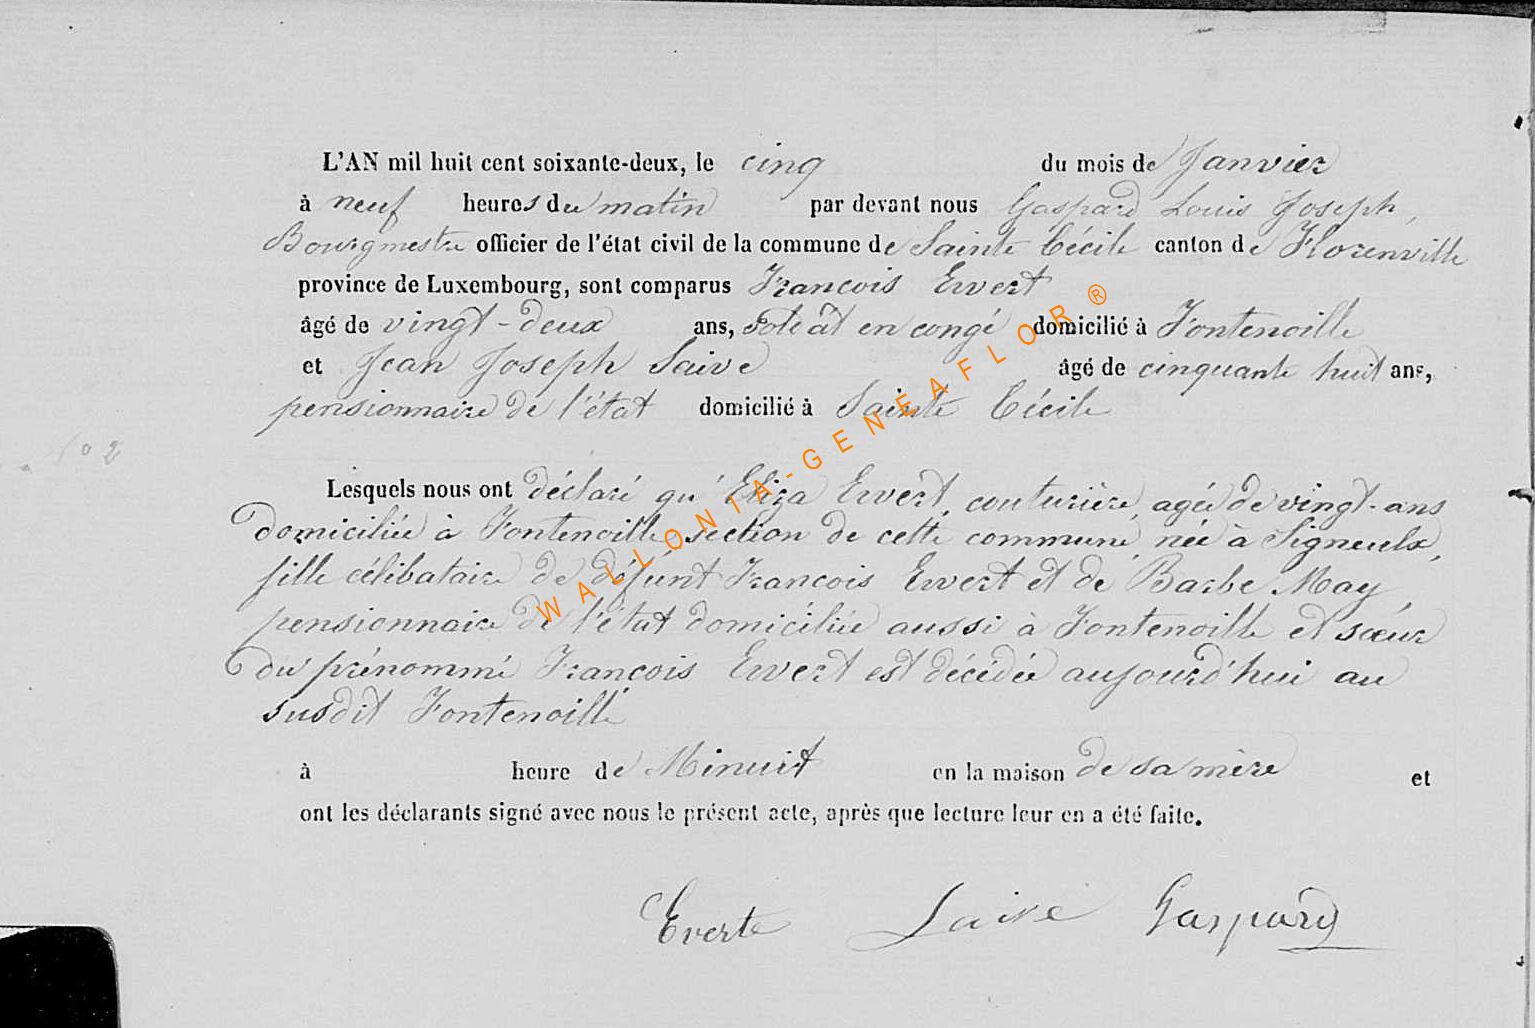 L'AN mil huit cent soixante-deux, le cinq du mois de Janvier
à neuf heures du matin par devant nous Gaspard Louis Joseph,
Bourgmestre officier de l'état civil de la commune de Sainte Cécile canton de Florenville
province de Luxembourg, sont comparus François Ewert
âgé de vingt-deux ans, soldat en congé domicilié à Fontenoille
et Jean Joseph Saive âgé de cinquante huit ans,
pensionnaire de l'état domicilié à Sainte Cécile
Lesquels nous ont déclaré qu'Eliza Ewert, couturière, agée de vingt-ans
domiciliée à Fontenoille, section de cette commune, née à Signeulx,
fille célibataire de défunt François Ewert et de Barbe May,
pensionnaire de l'état domiciliée aussi à Fontenoille et sœur
du prénommé François Ewert est décédée aujourd'hui au
susdit Fontenoille
à heure de Minuit en la maison de sa mère et
ont les déclarants signé avec nous le présent acte, après que lecture leur en a été faite.
Everte Saive Gaspard
WALLONIA-GENEAFLOR®